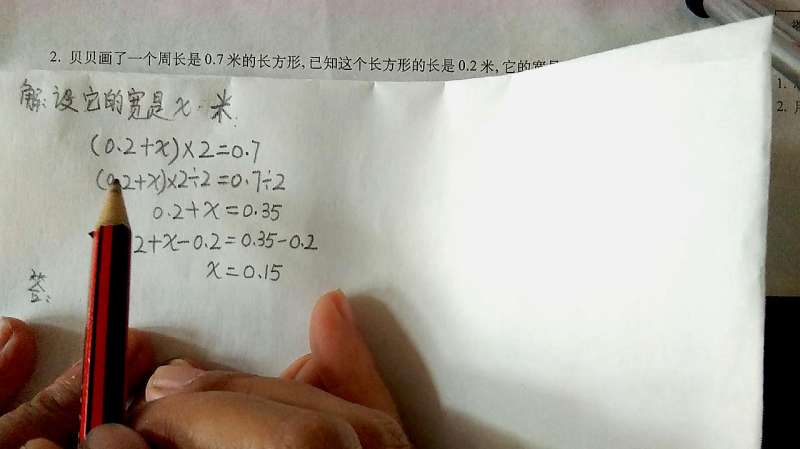 2. 贝贝画了一个周长是0.7米的长方形,已知这个长方形的长是0.2米,它的宽
1.
2.
解:设它的宽是x米.
(0.2+x)×2=0.7
(0.2+x)×2÷2=0.7÷2
0.2+x=0.35
2+x-0.2=0.35-0.2
x=0.15
答: